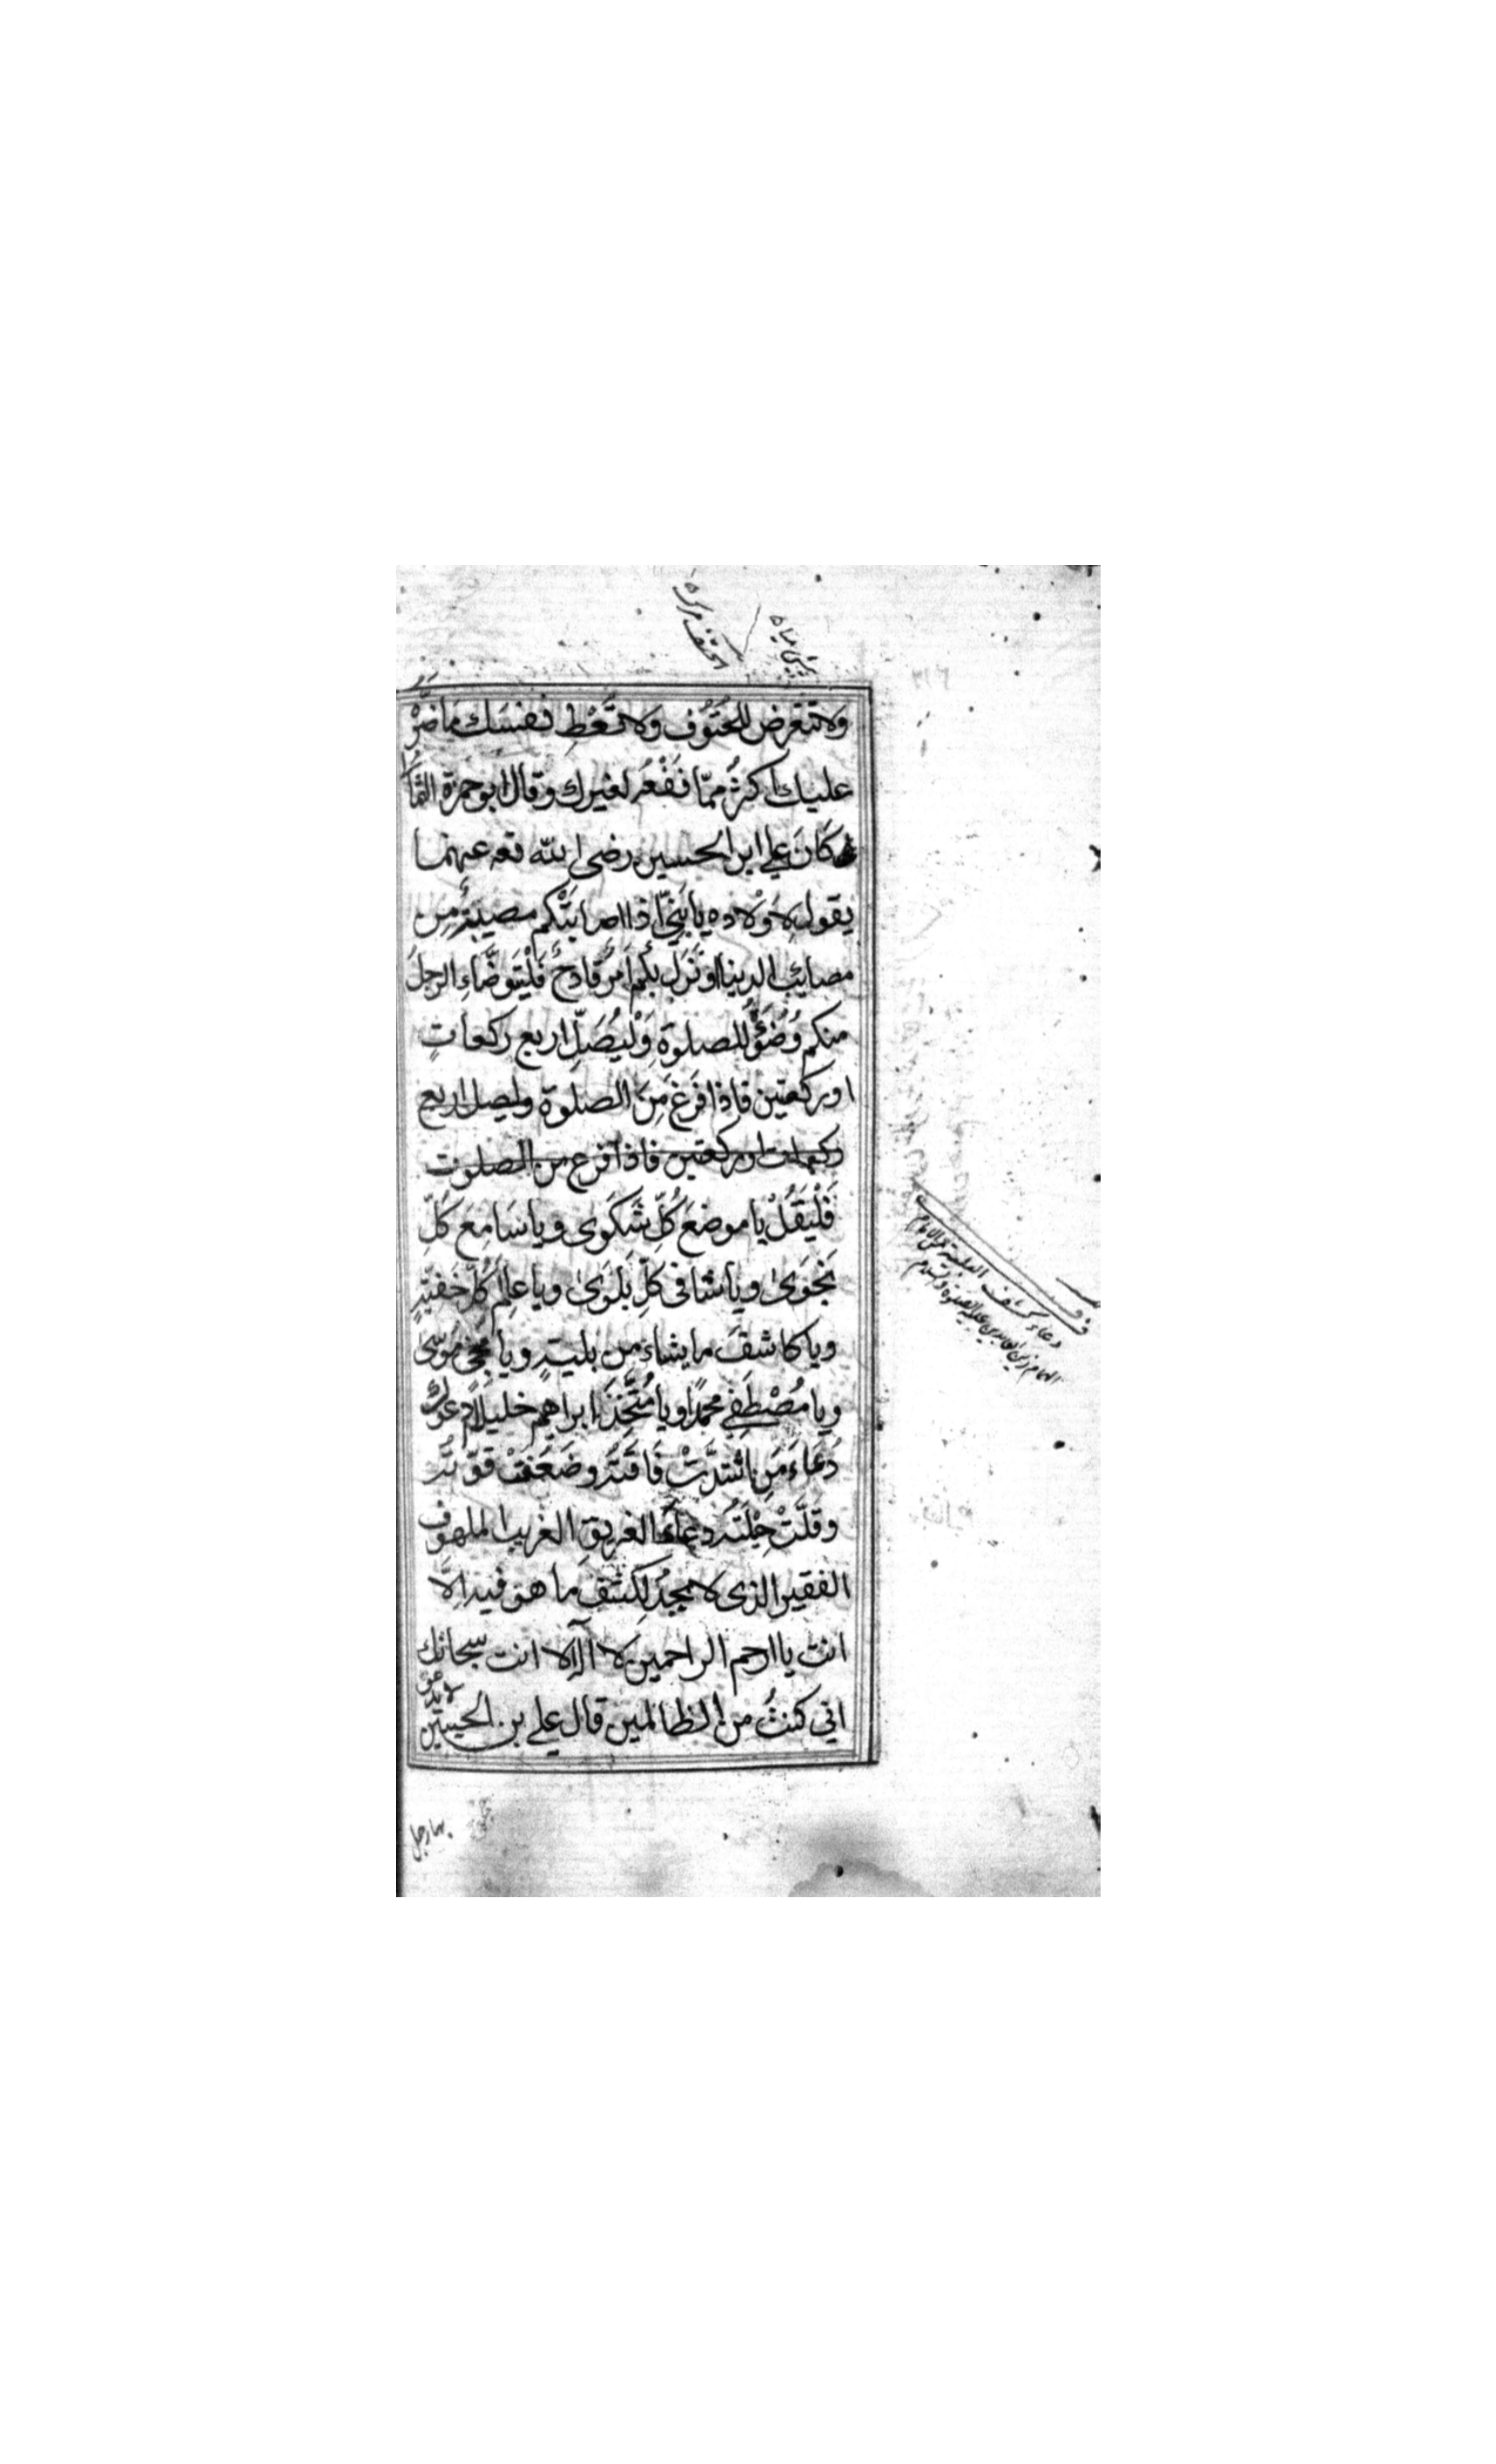 ولا تتعرض للحتوف ولا تعط نفسك ما ضرّه
عليك اكثر مما نفعه لغيرك وقال ابو حمزة الثما
كان علي ابن الحسين رضى الله تعه عنهما
يقول لاولاده يا بنيّ اذا اصابتكم مصيبة من
مصائب الدينا او نزل بكم امر قادح فليتوضّاء الرجل
منكم وضوء للصلوة وليصلّ اربع ركعات
او ركعتين فاذا فرغ من الصلوة وليصل اربع
ركعات او ركعتين فاذا فرغ من الصلوت
فليقل يا موضع كلّ شكوى ويا سامع كلّ
نجوى ويا شافى كلّ بلوى ويا عالم كلّ خفيّة
ويا كاشف ما يشاء من بلية ويا منجي موسى
ويا مصطفي محمدا ويا متّخذ ابراهيم خليلا ادعوك
دعاء من اشتدّت فاقته وضعفت قوّته
وقلّت حيلته دعاء الغريق الغريب الملهوف
الفقير الذى لا يجد لكشف ما هو فيه الّا
انت يا ارحم الراحمين لا اله الا انت سبحانك
اني كنت من الظالمين قال علي بن الحسين
لا يدعو
بها رجل
دعاء كشف البلية عن الامام
الهمام زين العابدين عليه الصلوة والسلام